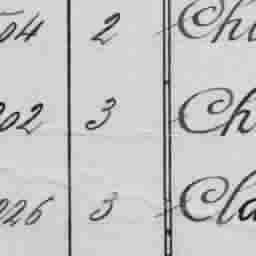 04 2 Ch
02 3 Ch
26 3 Cla